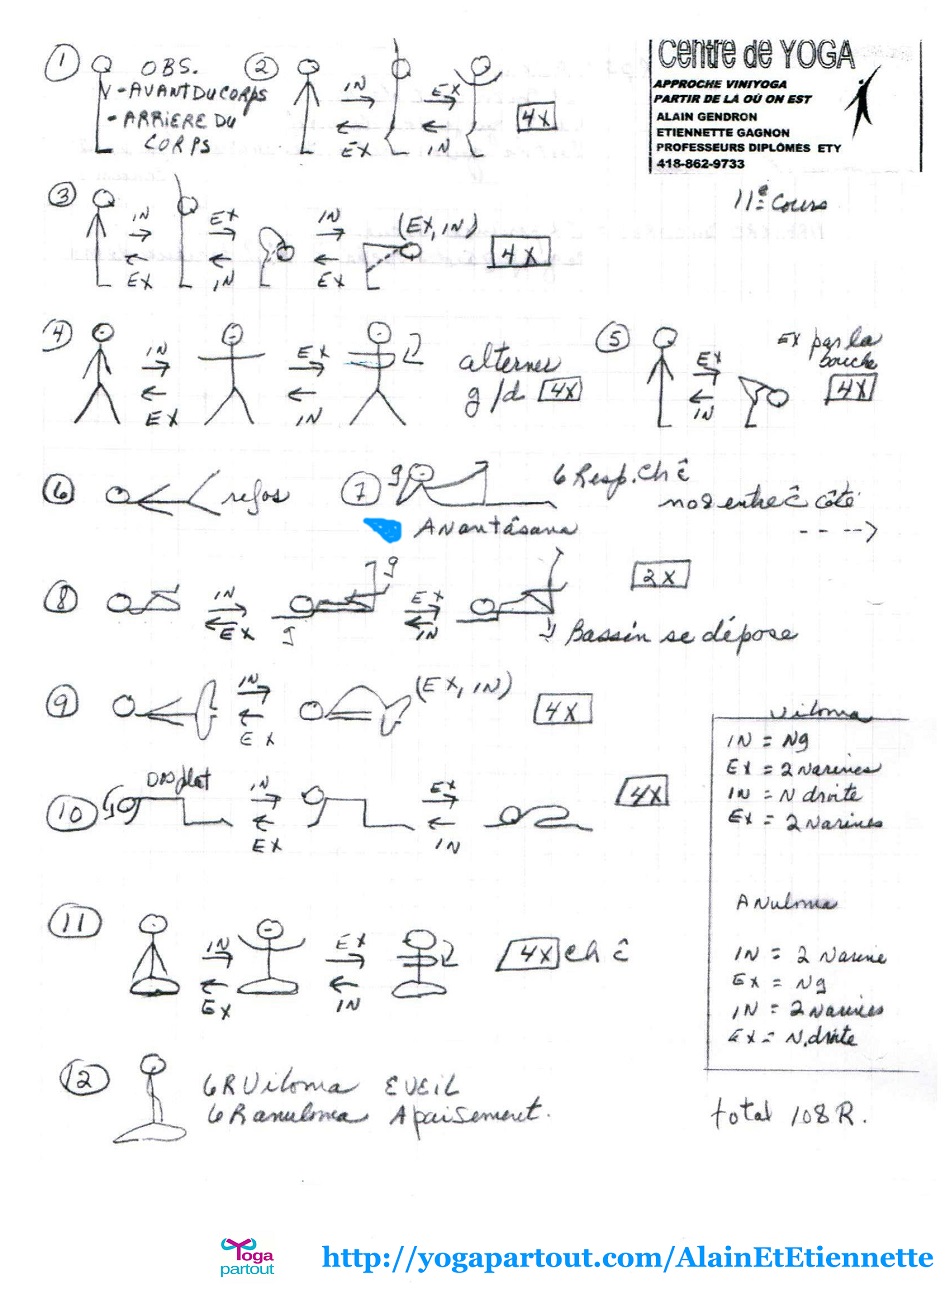 Centre de YOGA
APPROCHE VINIYOGA
PARTIR DE LA OÙ ON EST
ALAIN GENDRON
ETIENNETTE GAGNON
PROFESSEURS DIPLÔMÉS ETY
418-862-9733
11e Cours
1 OBS.
- AVANT DU CORPS
- ARRIERE DU
CORPS
2 IN EX 4X
EX IN
3 IN EX IN (EX, IN) 4X
EX IN EX
4 IN EX alternes
EX IN g/d 4X
5 EX EX par la
bouche
IN 4X
6 repos
7 g 6 Resp. ch ĉ
nos entre ĉ côté
Anantâsana
8 IN g EX 2X
EX g IN
Bassin se dépose
9 IN (EX, IN) 4X
EX
10 Dos plat IN EX 4X
EX IN
11 IN EX 4X ch ĉ
EX IN
12 6R Viloma EVEIL
6R anuloma Apaisement.
Viloma
IN = Ng
EX = 2 Narines
IN = N droite
EX = 2 Narines
Anuloma
IN = 2 Narine
EX = Ng
IN = 2 Narines
EX = N. droite
total 108 R.
Yoga
partout
http://yogapartout.com/AlainEtEtiennette